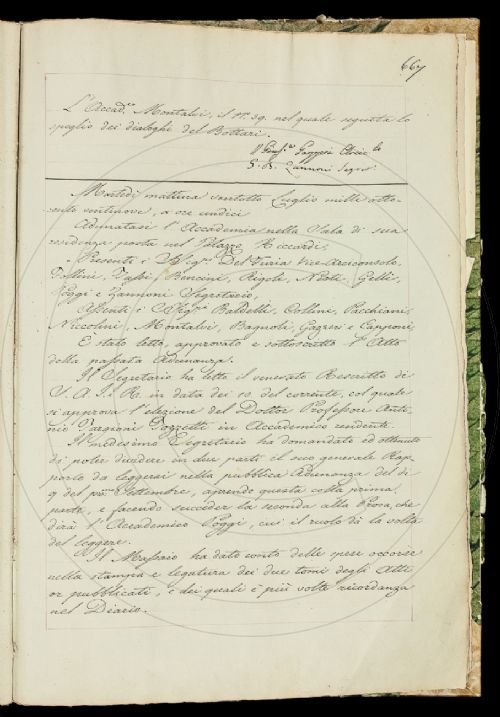 667
L'Accad.co Montalvi, il n.o 39. nel quale seguita lo
spoglio dei dialoghi del Bottari.
G. B. Zannoni Segr.o
Martedì mattina ventotto Luglio mille otto-
cento ventinove, a ore undici
Adunatasi l'Accademia nella Sala di sua
residenza posta nel Palazzo Riccardi;
Presenti i SS.ri Del Furia Vice-Arciconsolo,
Follini, Tassi, Bencini, Rigoli, Nesti, Gelli,
Poggi e Zannoni Segretario,
Assenti i SS.ri Baldelli, Collini, Pacchiani,
Niccolini, Montalvi, Bagnoli, Gazzeri e Capponi,
E' stato letto, approvato e sottoscritto l'Atto
della passata Adunanza.
Il Segretario ha letto il venerato Rescritto di
S. A. I. e R. in data dei 10. del corrente, col quale
si approva l'elezione del Dottor Professore Anto-
nio Targioni Tozzetti in Accademico residente.
Il medesimo Segretario ha domandato ed ottenuto
di poter dividere in due parti il suo generale Rap-
porto da leggersi nella pubblica Adunanza del dì
9 del pm.o Settembre, aprendo questa colla prima
parte, e facendo succeder la seconda alla Prosa, che
dirà l'Accademico Poggi, cui il ruolo dà la volta
del leggere.
Il Massaio ha dato conto delle spese occorse
nella stampa e legatura dei due tomi degli Atti
or pubblicati, e dei quali è più volte ricordanza
nel Diario.